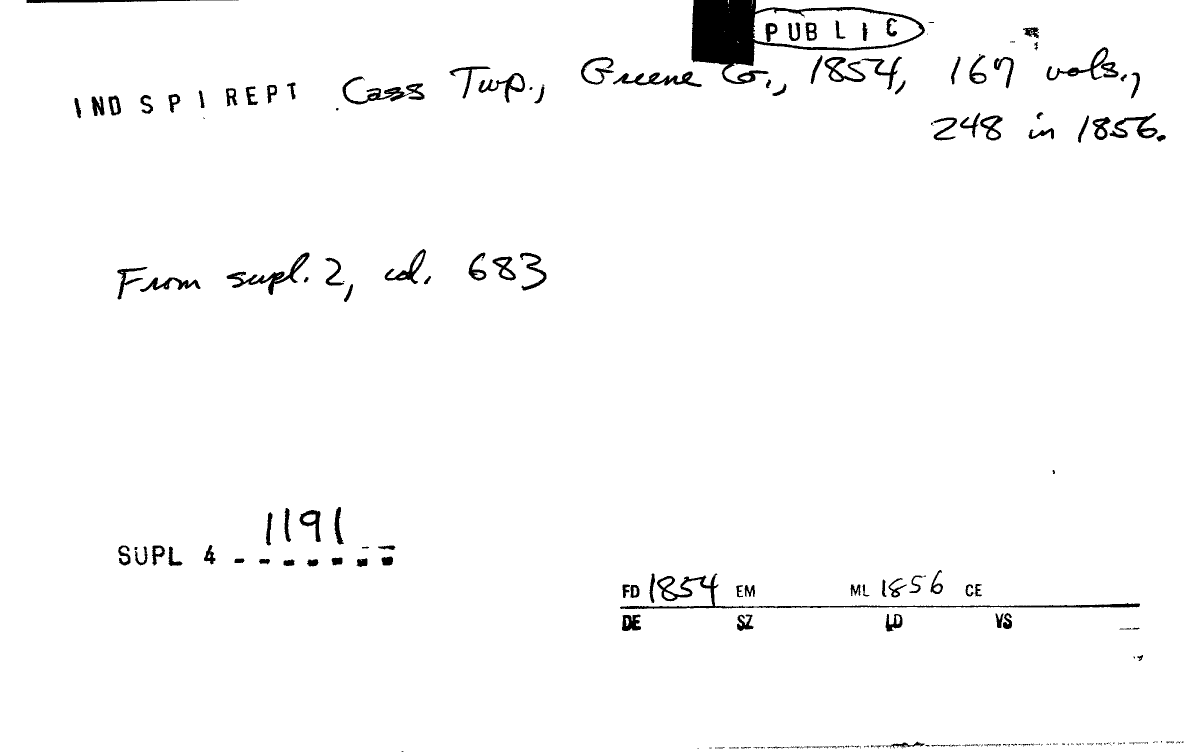 PUBLIC
INDSPIREPT Cass Twp., Greene Co., 1854, 167 vols.,
248 in 1856.
From supl. 2, col. 683
1191
SUPL 4 - - - - - - -
FD 1854 EM ML 1856 CE
DE SZ LD VS